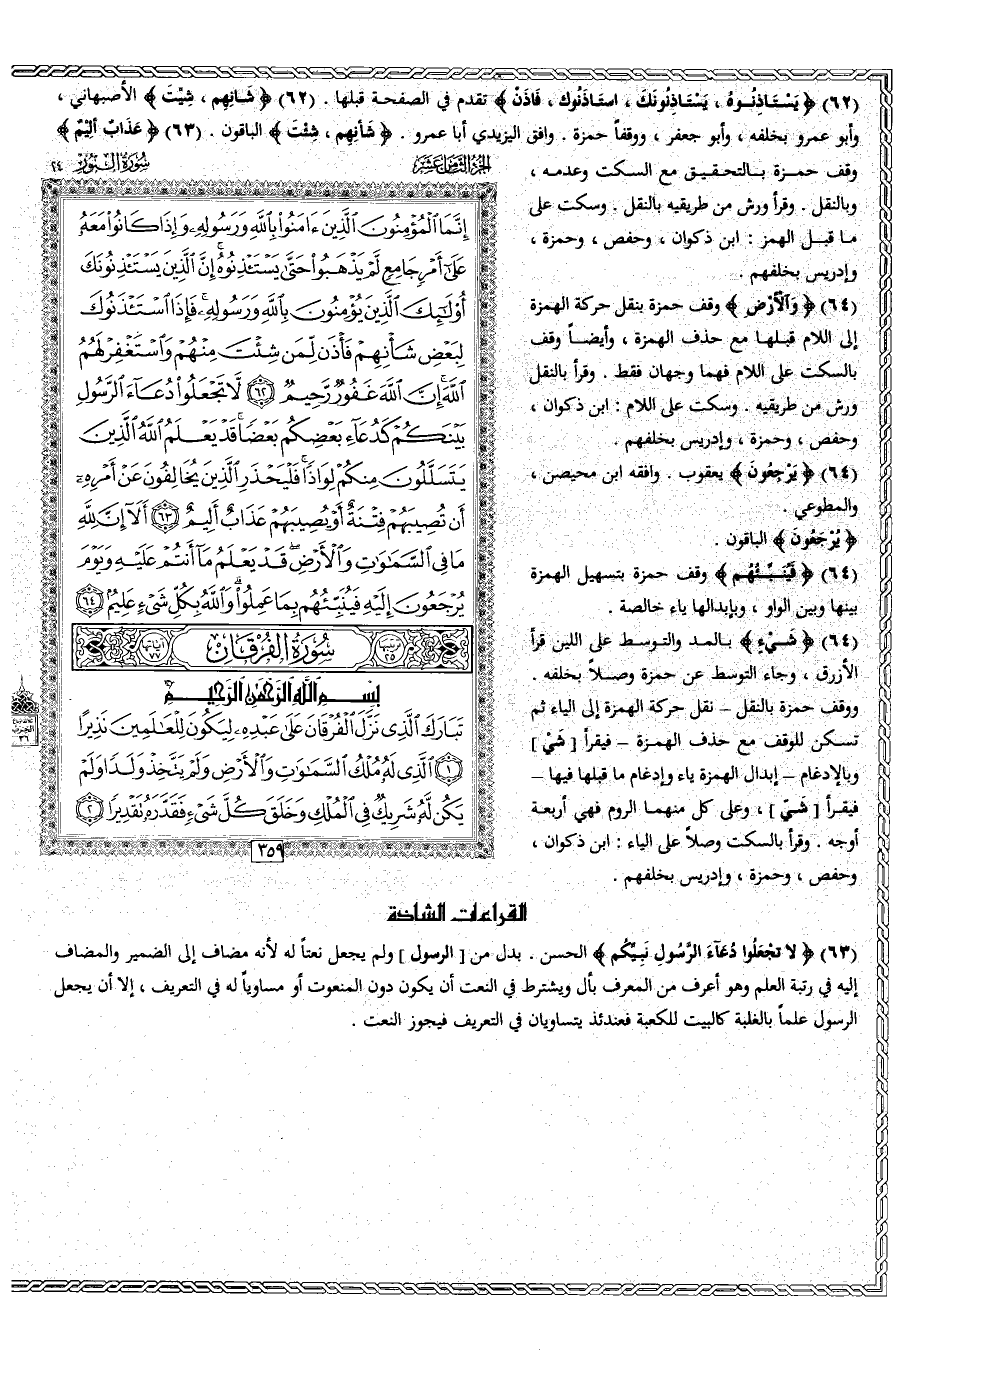 (٦٢) ﴿ يَسْتَاذِنُـوهُ ، يَسْتَاذِنُونَكَ ، استَاذَنُوك ، فَاذَنْ ﴾ تقدم في الصفحة قبلها . (٦٢) ﴿ شَانِهِم ، شِيْتَ ﴾ الأصبهاني ،
وأبو عمرو بخلفه ، وأبو جعفر ، ووقفاً حمزة . وافق اليزيدي أبا عمرو . ﴿ شَأنِهِم ، شِئتَ ﴾ الباقون . (٦٣) ﴿ عَذَابٌ أَلِيمٌ ﴾
وقف حمـزة بـالتحقيـق مع السكت وعدمـه ،
وبالنقل . وقرأ ورش من طريقيه بالنقل . وسكت على
مـا قبـل الهمز : ابن ذكوان ، وحفص ، وحمزة ،
وإدريس بخلفهم .
(٦٤) ﴿ وَالْأَرْضِ ﴾ وقف حمزة بنقل حركة الهمزة
إلى اللام قبلهـا مع حذف الهمزة ، وأيضـاً وقف
بالسكت على اللام فهما وجهان فقط . وقرأ بالنقل
ورش من طريقيه . وسكت على اللام : ابن ذكوان ،
وحفص ، وحمزة ، وإدريس بخلفهم .
(٦٤) ﴿ يَرْجِعُونَ ﴾ يعقوب . وافقه ابن محيصن ،
والمطوعي .
﴿ يُرْجَعُونَ ﴾ الباقون .
(٦٤) ﴿ فَيُنَبِّـئُهُم ﴾ وقف حمزة بتسهيل الهمزة
بينها وبين الواو ، وبإبدالها ياء خالصة .
(٦٤) ﴿ شَـيْءٍ ﴾ بـالمد والتـوسط على اللين قرأ
الأزرق ، وجاء التوسط عن حمزة وصـلاً بخلفه .
ووقف حمزة بالنقل – نقل حركة الهمزة إلى الياء ثم
تسكن للوقف مع حذف الهمـزة – فيقرأ [ شَيْ ]
وبالإدغام – إبدال الهمزة ياء وإدغام ما قبلها فيها –
فيقـرأ [ شَيّ ] ، وعلى كل منهمـا الروم فهي أربعـة
أوجه . وقرأ بالسكت وصلاً على الياء : ابن ذكوان ،
وحفص ، وحمزة ، وإدريس بخلفهم .
الجزء الثامن عشر
سورة النور ٢٤
إِنَّمَا الْمُؤْمِنُونَ الَّذِينَ ءَامَنُوا۟ بِاللَّهِ وَرَسُولِهِۦ وَإِذَا كَانُوا۟ مَعَهُۥ
عَلَىٰٓ أَمْرٍ جَامِعٍ لَّمْ يَذْهَبُوا۟ حَتَّىٰ يَسْتَـْٔذِنُوهُ ۚ إِنَّ الَّذِينَ يَسْتَـْٔذِنُونَكَ
أُو۟لَٰٓئِكَ الَّذِينَ يُؤْمِنُونَ بِاللَّهِ وَرَسُولِهِۦ ۚ فَإِذَا اسْتَـْٔذَنُوكَ
لِبَعْضِ شَأْنِهِمْ فَأْذَن لِّمَن شِئْتَ مِنْهُمْ وَاسْتَغْفِرْ لَهُمُ
اللَّهَ ۚ إِنَّ اللَّهَ غَفُورٌ رَّحِيمٌ ٦٢ لَّا تَجْعَلُوا۟ دُعَآءَ الرَّسُولِ
بَيْنَكُمْ كَدُعَآءِ بَعْضِكُم بَعْضًا ۚ قَدْ يَعْلَمُ اللَّهُ الَّذِينَ
يَتَسَلَّلُونَ مِنكُمْ لِوَاذًا ۚ فَلْيَحْذَرِ الَّذِينَ يُخَالِفُونَ عَنْ أَمْرِهِۦٓ
أَن تُصِيبَهُمْ فِتْنَةٌ أَوْ يُصِيبَهُمْ عَذَابٌ أَلِيمٌ ٦٣ أَلَآ إِنَّ لِلَّهِ
مَا فِى السَّمَٰوَٰتِ وَالْأَرْضِ ۖ قَدْ يَعْلَمُ مَآ أَنتُمْ عَلَيْهِ وَيَوْمَ
يُرْجَعُونَ إِلَيْهِ فَيُنَبِّئُهُم بِمَا عَمِلُوا۟ ۗ وَاللَّهُ بِكُلِّ شَىْءٍ عَلِيمٌۢ ٦٤
ترتيبها ٢٥ سُورَةُ الْفُرْقَانِ آياتها ٧٧
بِسْمِ اللَّهِ الرَّحْمَٰنِ الرَّحِيمِ
تَبَارَكَ الَّذِى نَزَّلَ الْفُرْقَانَ عَلَىٰ عَبْدِهِۦ لِيَكُونَ لِلْعَٰلَمِينَ نَذِيرًا
١ الَّذِى لَهُۥ مُلْكُ السَّمَٰوَٰتِ وَالْأَرْضِ وَلَمْ يَتَّخِذْ وَلَدًا وَلَمْ
يَكُن لَّهُۥ شَرِيكٌ فِى الْمُلْكِ وَخَلَقَ كُلَّ شَىْءٍ فَقَدَّرَهُۥ تَقْدِيرًا ٢
٣٥٩
القراءات الشاذة
(٦٣) ﴿ لا تَجْعَلُوا دُعَآءَ الرَّسُولِ نَبِيِّكُم ﴾ الحسن . بدل من [ الرسول ] ولم يجعل نعتاً له لأنه مضاف إلى الضمير والمضاف
إليه في رتبة العلم وهو أعرف من المعرف بأل ويشترط في النعت أن يكون دون المنعوت أو مساوياً له في التعريف ، إلا أن يجعل
الرسول علماً بالغلبة كالبيت للكعبة فعندئذ يتساويان في التعريف فيجوز النعت .